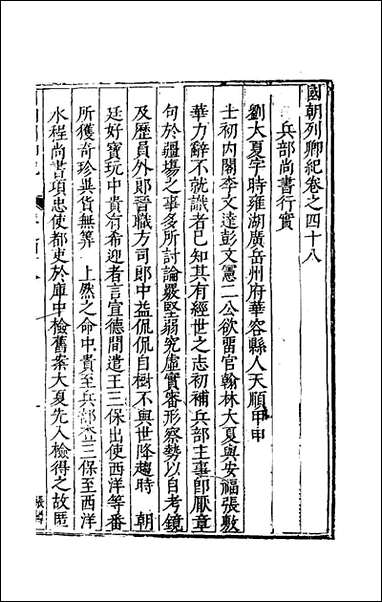 國朝列卿紀卷之四十八
兵部尚書行實
劉大夏字時雍湖廣岳州府華容縣人天順甲申
士初內閣李文達彭文憲二公欲畱官翰林大夏與安福張敷
華力辭不就識者已知其有經世之志初補兵部主事卽厭章
句於疆埸之事多所討論嚴堅翁究虛實審形察勢以自考鏡
及歷員外郎晉職方司郎中益侃侃自樹不與世降趨時 朝
廷好寶玩中貴有希迎者言宣德間遣王三保出使西洋等番
所獲奇珍異貨無筭 上然之命中貴至兵部查三保至西洋
水程尚書項忠使都吏於庫中檢舊案大夏先入檢得之故匿